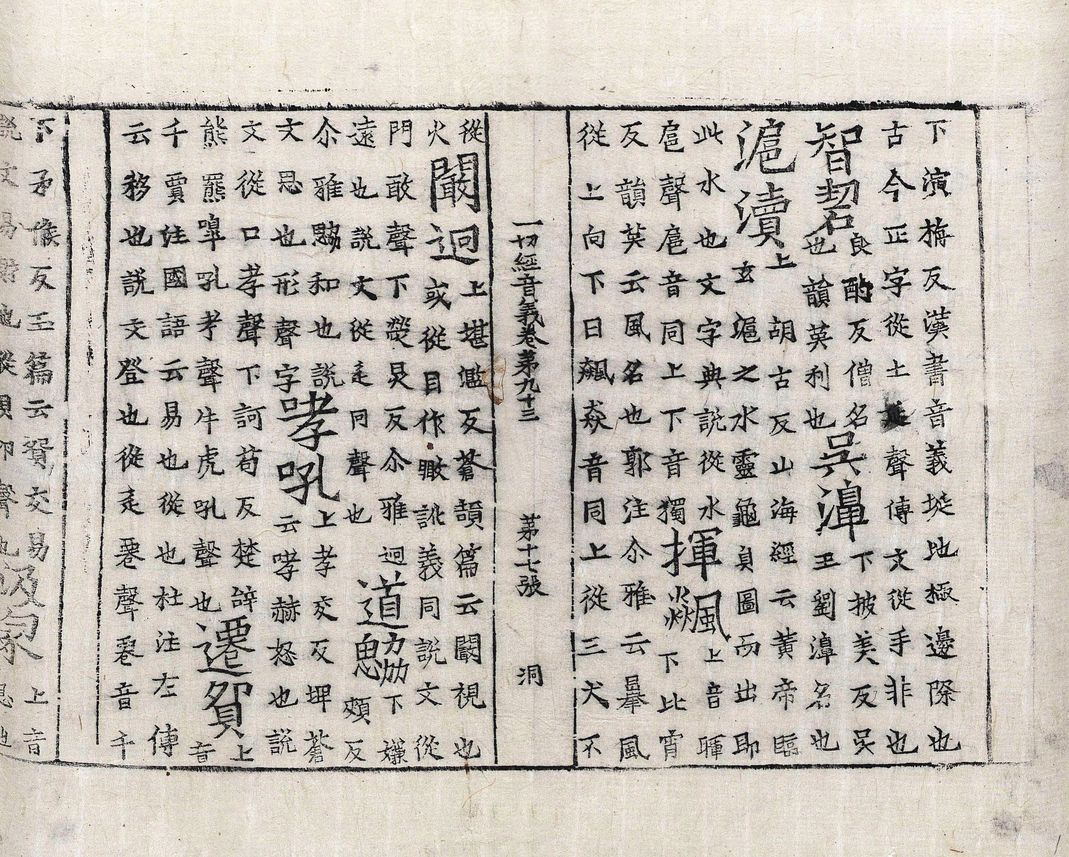 下演梅反漢書音義埏地極邊際也
古今正字從土延聲傳文從手非也
智䂮良酌反僧名也韻英利也吳濞下披美反吳王劉濞名也
滬瀆上胡古反山海經云黃帝臨
玄滬之水靈龜負圖而出即
此水也文字典說從水
扈聲扈音同上下音獨揮飆上音暉下比霄
反韻英云風名也郭注尒雅云暴風
從上向下曰飆猋音同上從三犬不
一切經音義卷第九十三 第十七張 洞
從火
闞迥上堪濫反蒼頡篇云闞視也
或從目作瞰訛義同説文從
門敢聲下熒炅反尒雅迥
遠也説文從辵冋聲也道勰下嫌頰反
尒雅勰和也説
文思也形聲字哮吼上孝交反埤蒼
云哮赫怒也説
文從口孝聲下訶苟反楚辭
熊羆嘷吼考聲牛虎吼聲也遷貿上音
千賈注國語云易也從也杜注左傳
云移也説文登也從辵䙴聲䙴音千
下矛候反玉篇云貿交易
説文易財也從貝卯聲也 上音